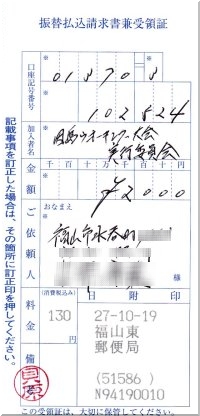 振替払込請求書兼受領証
口座記号番号
01370 8
102824
加入者名
因島ウオーキング大会
実行委員会
金額
千 百 十 万 千 百 十 円
¥2000
ご依頼人
おなまえ
福山市水呑町
様
料金
(消費税込み)
130 円
日附印
27-10-19
福山東
郵便局
(51586)
N94190010
備
この受領証は、大切に保管してください。
記載事項を訂正した場合は、その箇所に訂正印を押してください。